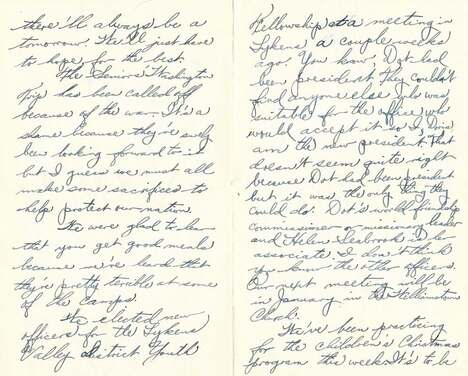 there'll always be a
tomorrow. We'll just have
to hope for the best.
The Seniors' Washington
trip has been called off
because of the war. It's a
shame because they've surely
been looking forward to it
but I guess we must all
make some sacrifices to
help protect our nation.
We were glad to learn
that you get good meals
because we've heard that
they're pretty terrible at some
of the camps.
We elected new
officers for the Lykens
Valley District Youth
Fellowship at a meeting in
Lykens a couple weeks
ago. You know, Dot had
been president they couldn't
find anyone else who was
suitable for the office who
would accept it so I, Doris
am the new president. That
doesn't seem quite right
because Dot had been president
but it was the only thing they
could do. Dot's world friendship
commissioner or missionary leader
and Helen Seabrook is her
associate. I don't think
you know the other officers.
Our next meeting will be
in January in the Williamstown
Church.
We've been practicing
for the children's Christmas
program this week. It's to be